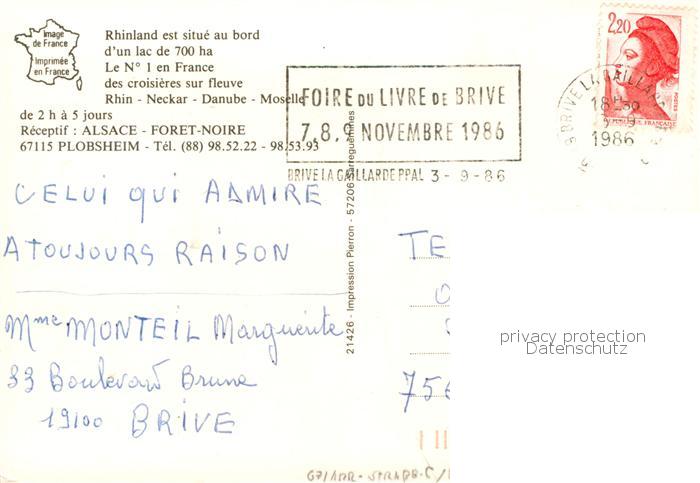 Image
de France
Imprimée
en France
Rhinland est situé au bord
d'un lac de 700 ha
Le N° 1 en France
des croisières sur fleuve
Rhin - Neckar - Danube - Moselle
de 2 h à 5 jours
Réceptif : ALSACE - FORET-NOIRE
67115 PLOBSHEIM - Tél. (88) 98.52.22 - 98.53.93
FOIRE DU LIVRE DE BRIVE
7,8,9 NOVEMBRE 1986
BRIVE LA GAILLARDE PPAL 3-9-86
2,20
POSTES
BRIVE LA GAILLARDE
18H30
1986
CELUI QUI ADMIRE
A TOUJOURS RAISON
Mme MONTEIL Marguerite
33 Boulevard Brune
19100
BRIVE
21426 - Impression Pierron - 57206 Sarreguemines
TE
75
privacy protection
Datenschutz